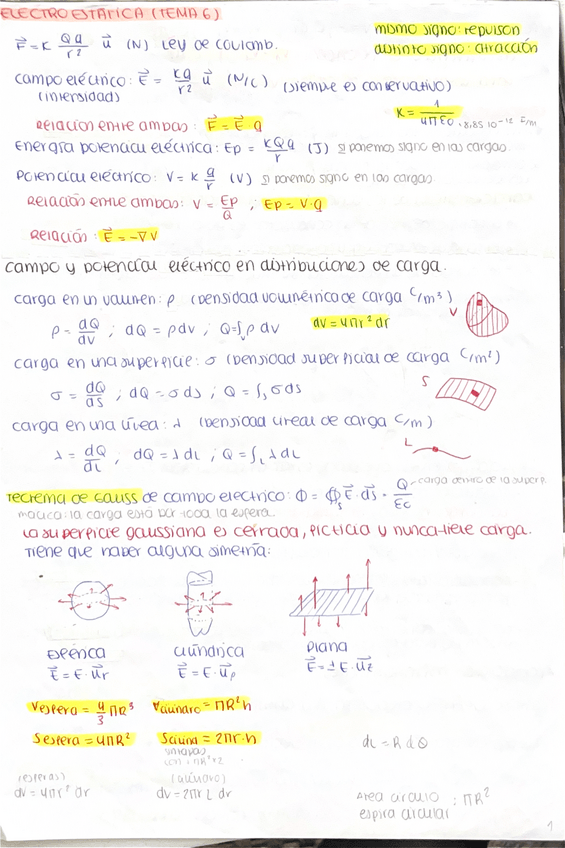 ELECTROESTÁTICA (TEMA 6)
mismo signo: repulsión
distinto signo: atracción
F⃗ = K Qq/r² u⃗ (N) Ley de Coulomb.
campo eléctrico: E⃗ = Kq/r² u⃗ (N/C) (siempre es conservativo)
(intensidad)
K = 1/4πε₀ · 8,85 10⁻¹² F/m
Relación entre ambas: F⃗ = E⃗ q
Energía potencial eléctrica: Ep = KQq/r (J) SI ponemos signo en las cargas.
Potencial eléctrico: V = K q/r (V) SI ponemos signo en las cargas
Relación entre ambas: V = Ep/Q ; Ep = V·q
Relación: E⃗ = -∇V
campo y potencial eléctrico en distribuciones de carga.
carga en un volumen: ρ (densidad volumétrica de carga C/m³)
V
ρ = dQ/dV ; dQ = ρdv ; Q=∫ᵥ ρ dv dv = 4πr² dr
carga en una superficie: σ (densidad superficial de carga C/m²)
S
σ = dQ/ds ; dQ = σ ds ; Q = ∫ₛ σds
carga en una línea: λ (densidad lineal de carga C/m)
L
λ = dQ/dL ; dQ = λ dL ; Q = ∫L λdL
Teorema de Gauss de campo electrico: Φ = ∯ₛ E⃗·ds⃗ = Q/ε₀ carga dentro de la superf.
maciza: la carga está por toda la esfera.
La superficie gaussiana es cerrada, ficticia y nunca tiene carga.
Tiene que haber alguna simetría:
Esférica cilíndrica Plana
E⃗ = E·u⃗r E⃗ = E·u⃗ρ E⃗ = ±E·u⃗z
Vesfera = 4/3 πR³ Vcilindro = πR²h
Sesfera = 4πR² Scilind = 2πr·h
dL = R dθ
(esferas) (cilindro)
dv = 4πr² dr dv = 2πr L dr
Area círculo : πR²
espira circular
1